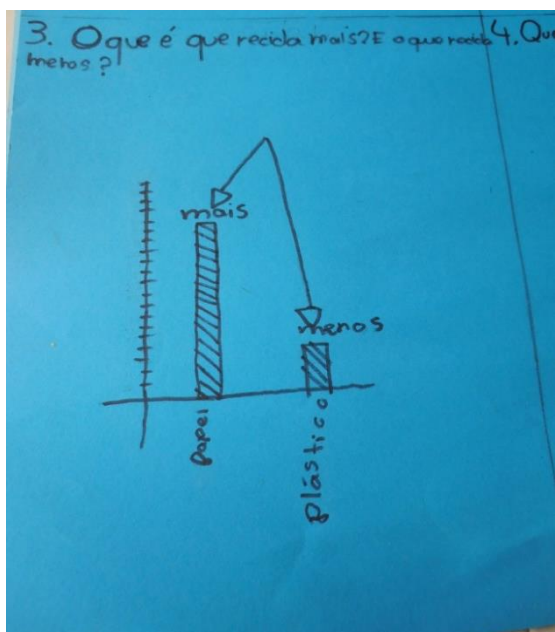 3. O que é que recicla mais? E o que recicla
menos?
4. Que
mais
menos
papel
plástico